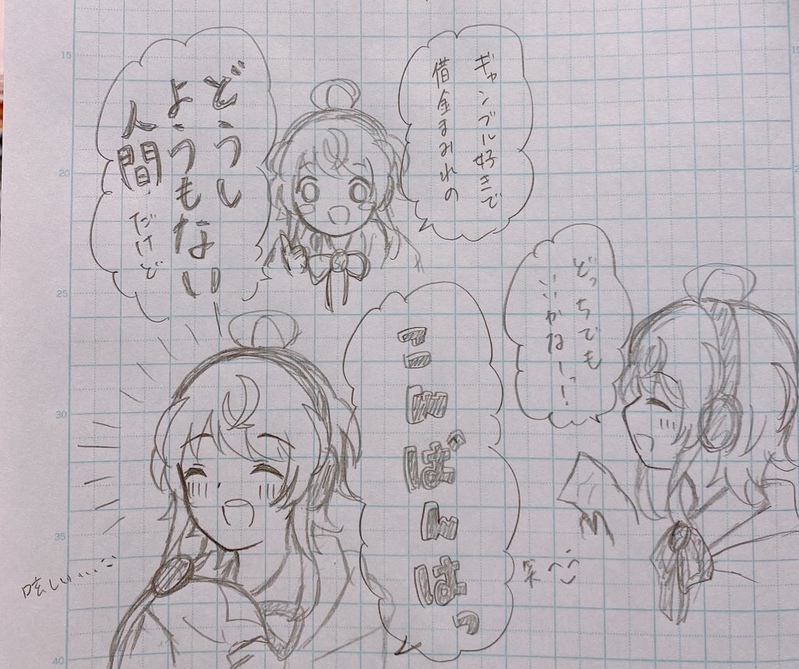 ギャンブル好きで
借金まみれの
どうし
ようもない
人間だけど
どっちでも
いいかなーっ!
こんばんはっ
眩しい....
笑
15
20
25
30
35
40